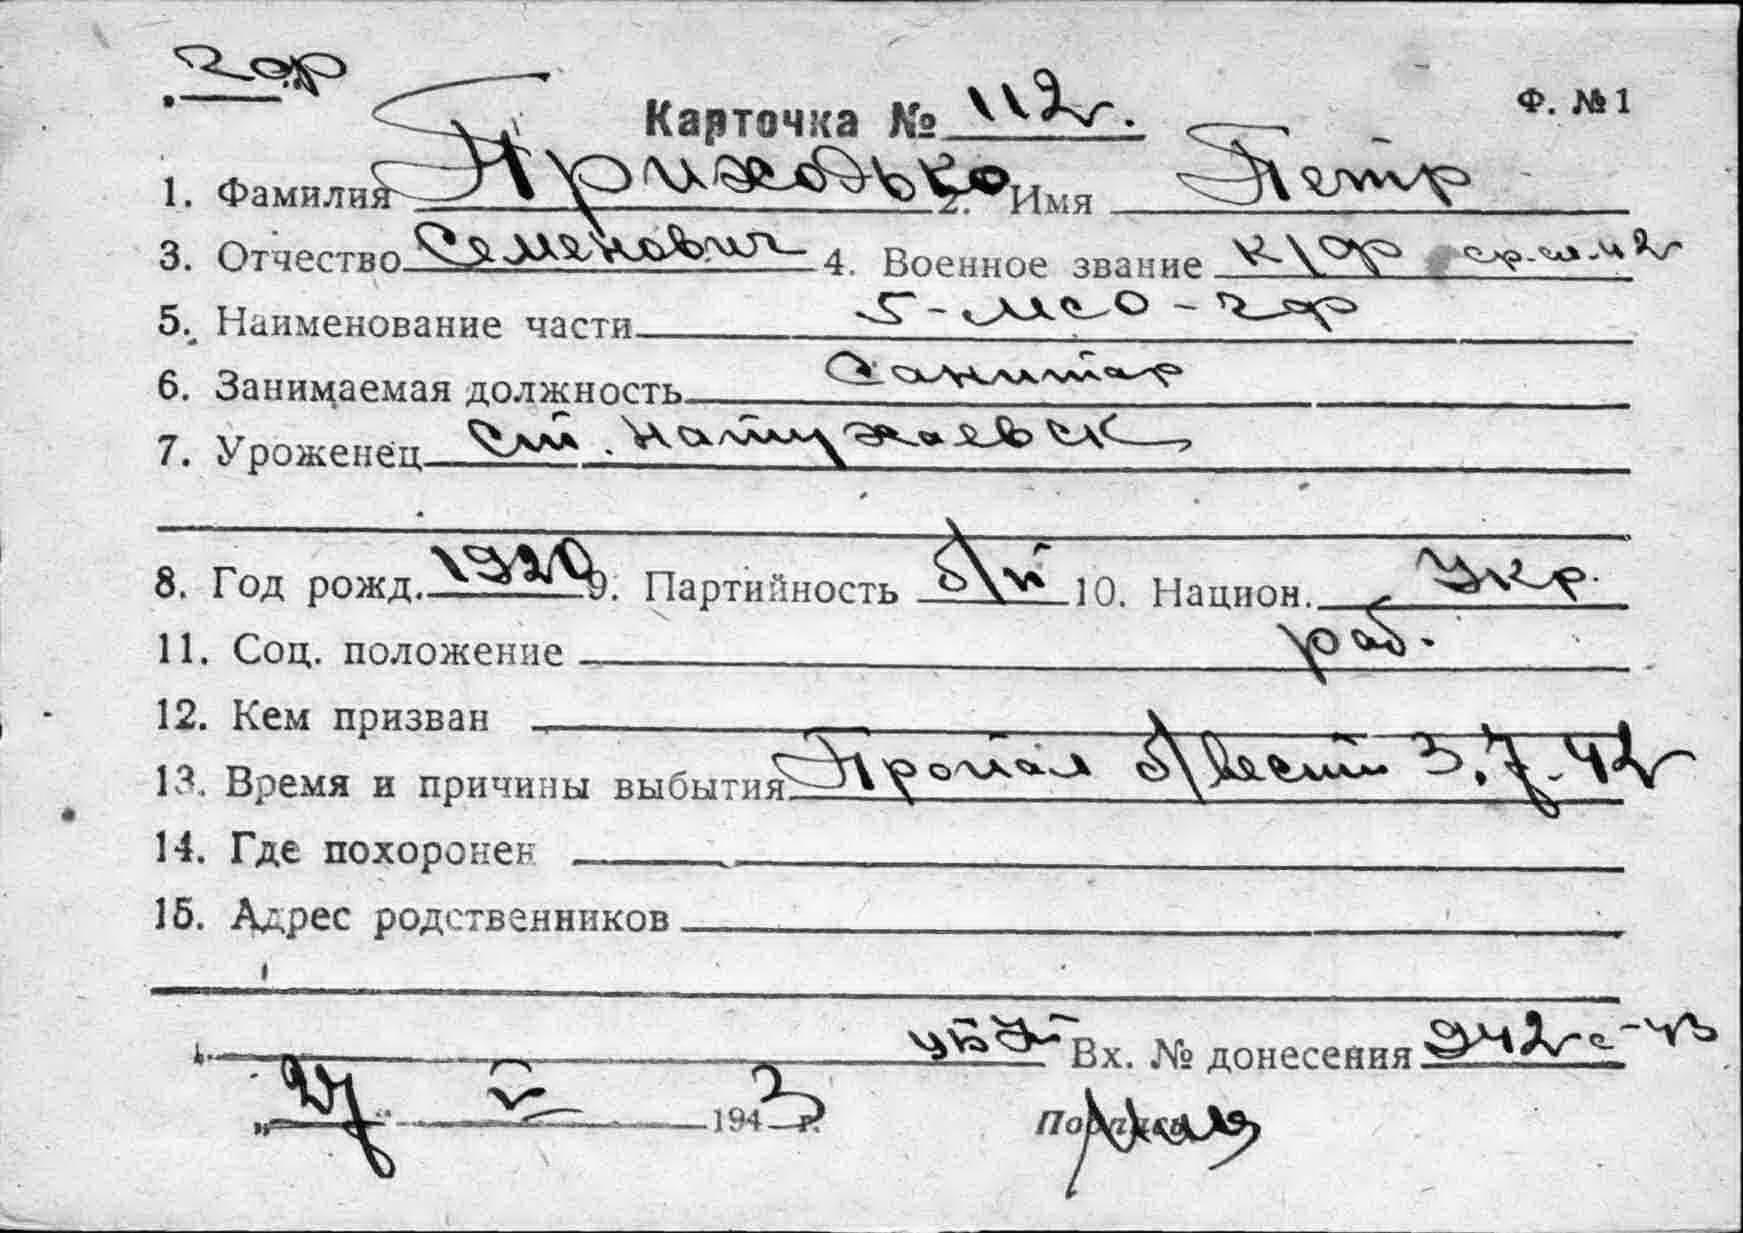 чф
Карточка № 112 г. Ф. № 1
1. Фамилия Приходько 2. Имя Петр
3. Отчество Семенович 4. Военное звание к/ф ср. сл. 42
5. Наименование части 5-мсо-чф
6. Занимаемая должность Санитар
7. Уроженец ст. Натухаевск
8. Год рожд. 1920 9. Партийность б/п 10. Национ. Укр.
11. Соц. положение раб.
12. Кем призван
13. Время и причины выбытия Пропал б/вести 3.7.42
14. Где похоронен
15. Адрес родственников
Вх. № донесения 942с-43
„27“ V 1943 г. Подпись